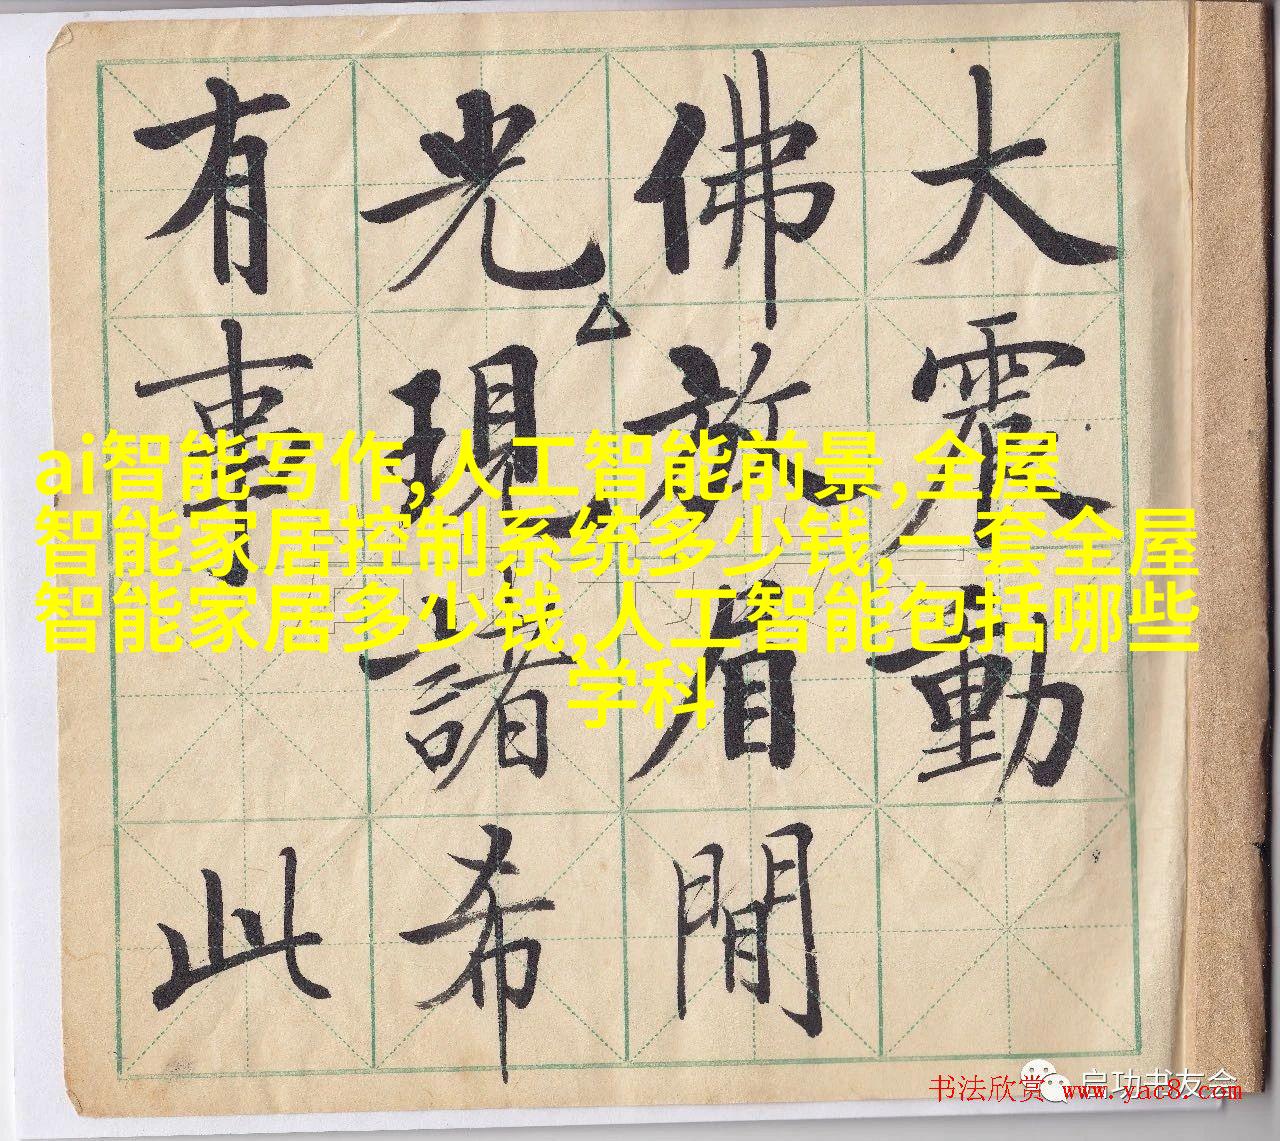 大震動
佛放眉間
光現諸希
有事此
ai智能写作,人工智能前景,全屋
智能家居控制系统多少钱,一套全屋
智能家居多少钱,人工智能包括哪些
学科
启功书友会
书法欣赏 www.yac8.com